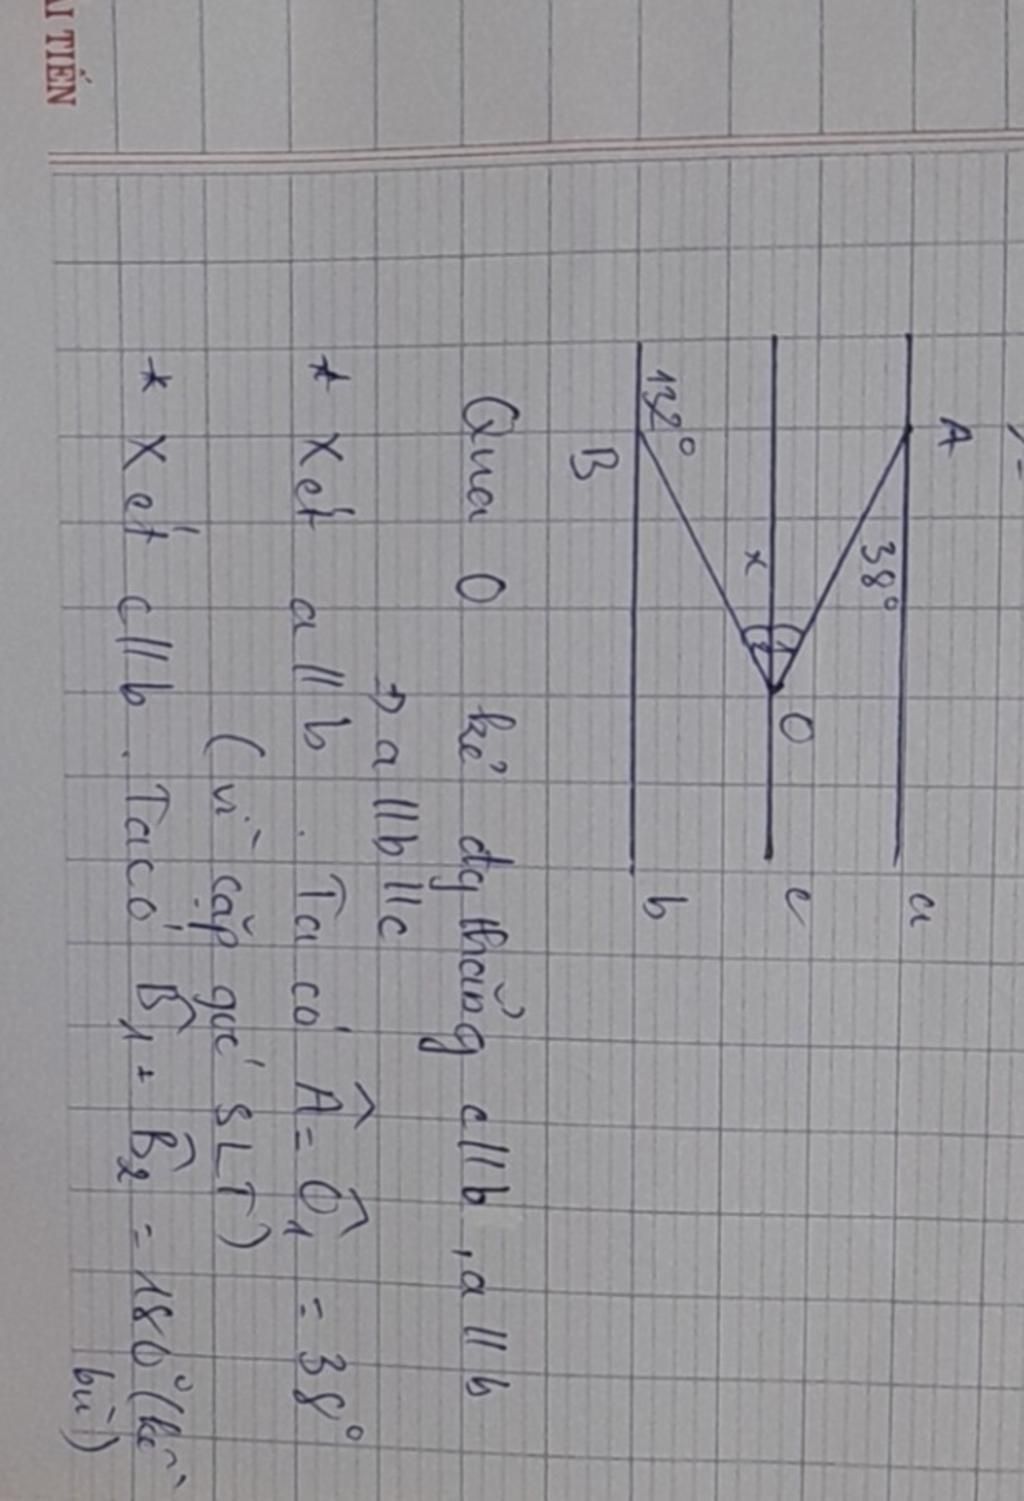 A
38°
a
x
1
2
O
c
132°
B
b
Qua O kẻ đg thẳng c//b, a//b
⇒ a//b//c
* Xét a//b. Ta có Â = Ô1 = 38°
(vì cặp goć SLT)
* Xét c//b. Ta có B̂1 + B̂2 = 180° (kề
bù)
AI TIẾN